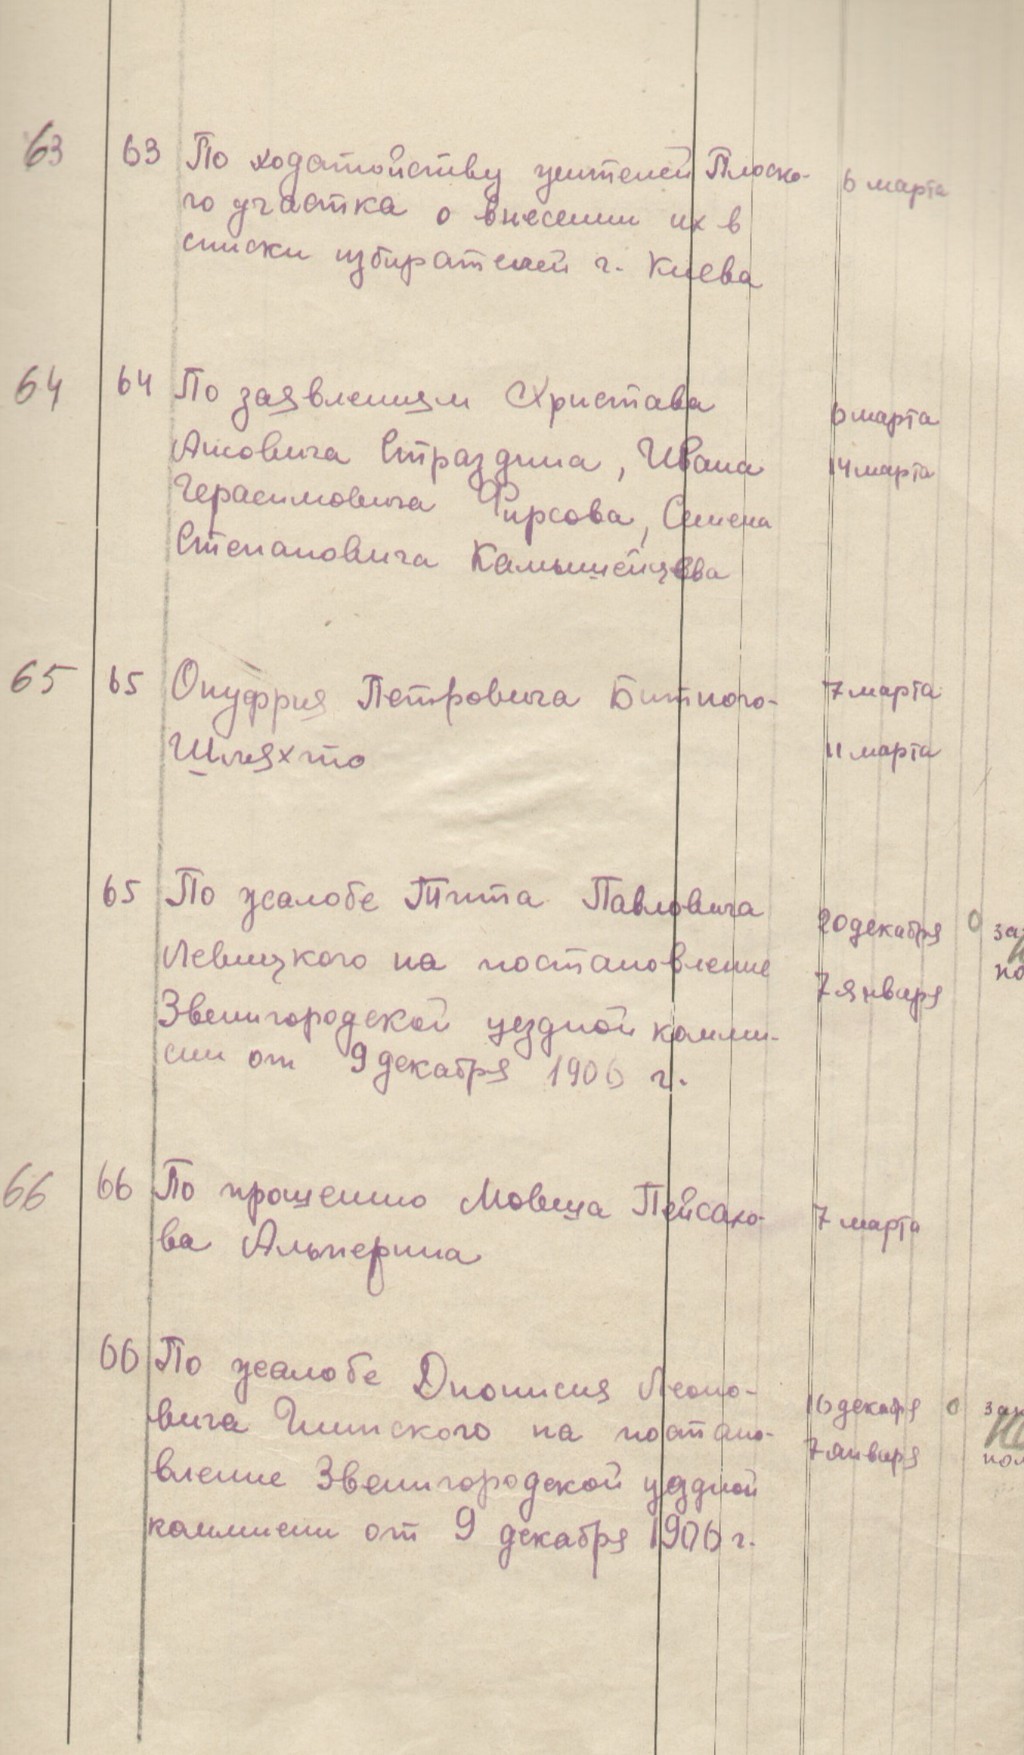 63 63 По ходатайству учителей Плоско- 6 марта
го участка о внесении их в
списки избирателей г. Киева
64 64 По заявлениям Христава 6 марта
Ансовича Страздина, Ивана 14 марта
Герасимовича Фирсова, Семена
Степановича Камышенцова
65 65 Онуфрия Петровича Битного- 7 марта
Шляхто 11 марта
65 По жалобе Тита Павловича 20 декабря 0
Левицкого на постановление 7 января
Звенигородской уездной комми-
сии от 9 декабря 1906 г.
66 66 По прошению Мовша Пейсахо- 7 марта
ва Альперина
66 По жалобе Дионисия Леоно- 16 декабря 0
вича на постано- 7 января
вление Звенигородской уездной
коммисии от 9 декабря 1906 г.